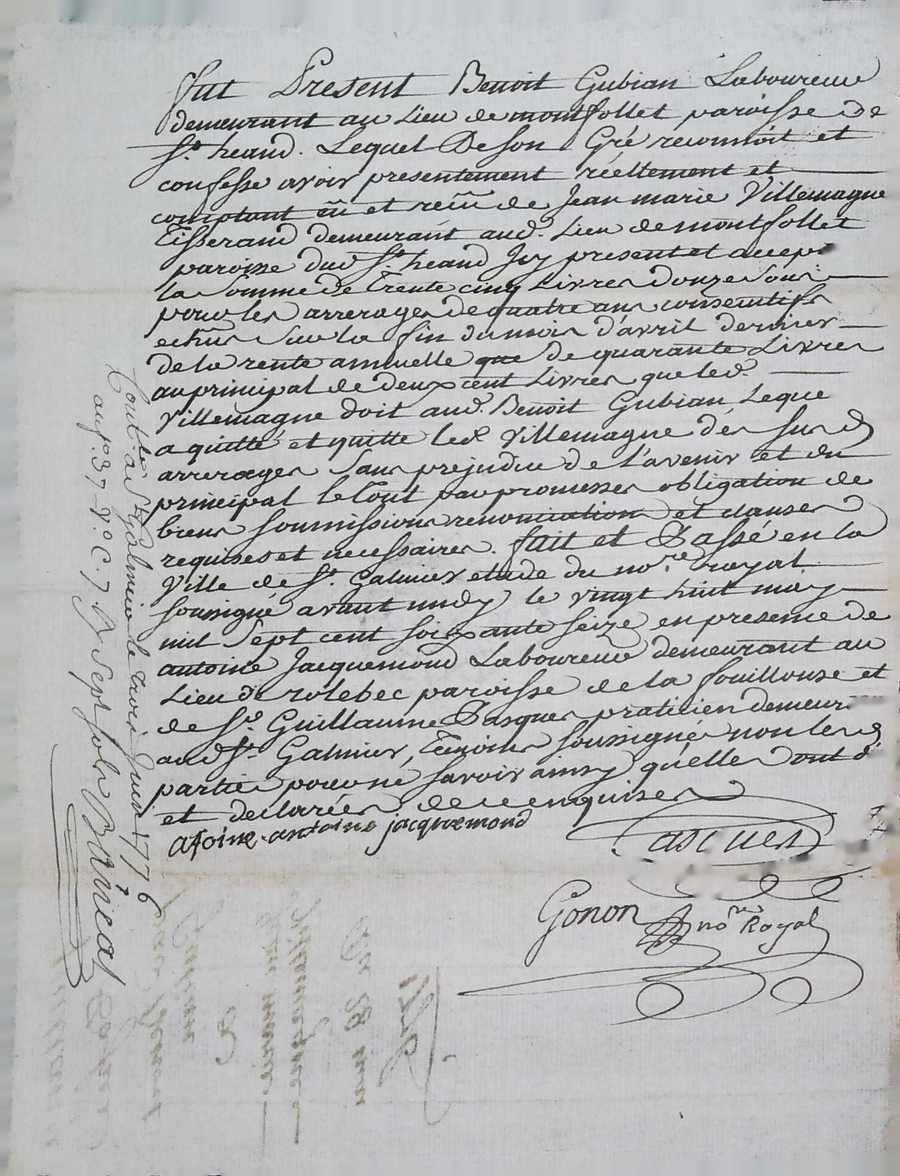 Fut Present Benoit Gubian Laboureur
demeurant au Lieu de montfollet paroisse de
St. heand. Lequel De son Gré reconnoit et
confesse avoir presentement réellement et
comptant eü et reçeü de Jean marie Villemagne
Tisserand demeurant aud. Lieu de montfollet
paroisse dud St. heand Icy present et accept
la somme de Trente cinq Livres Douze Sous
pour les arrerages de quatre ans consecutifs
echus sur la fin du mois d'avril dernier
de la rente annuelle que de quarante Livres
au principal de deux cent Livres que led.
Villemagne doit aud. Benoit Gubian, Leque
a quitté et quitte led Villemagne des susd
arrerages sans prejudice de l'avenir et du
principal le tout par promesses obligation de
biens soumissions renonciation et clauses
requises et necessaires. fait et Passé en la
Ville de St. Galmier etude du nore. royal
soussigné avant midy le vingt huit may
mil Sept cent soixante seize en presence de
antoine Jacquemond Laboureur demeurant au
Lieu de rolebec paroisse de la fouillouse et
de Sr. Guillaume Pasques praticien demeur
aud St. Galmier, Temoins soussignés non les d
parties pour ne savoir ainsy qu'elles ont d
et declarées de ce enquises
atoine antoine jacquemond
Pasques
Gonon nore Royal
Contlé a St Galmier le trois Juin 1776
au fo. 37 Vo C. 7 R Sept sols Barical